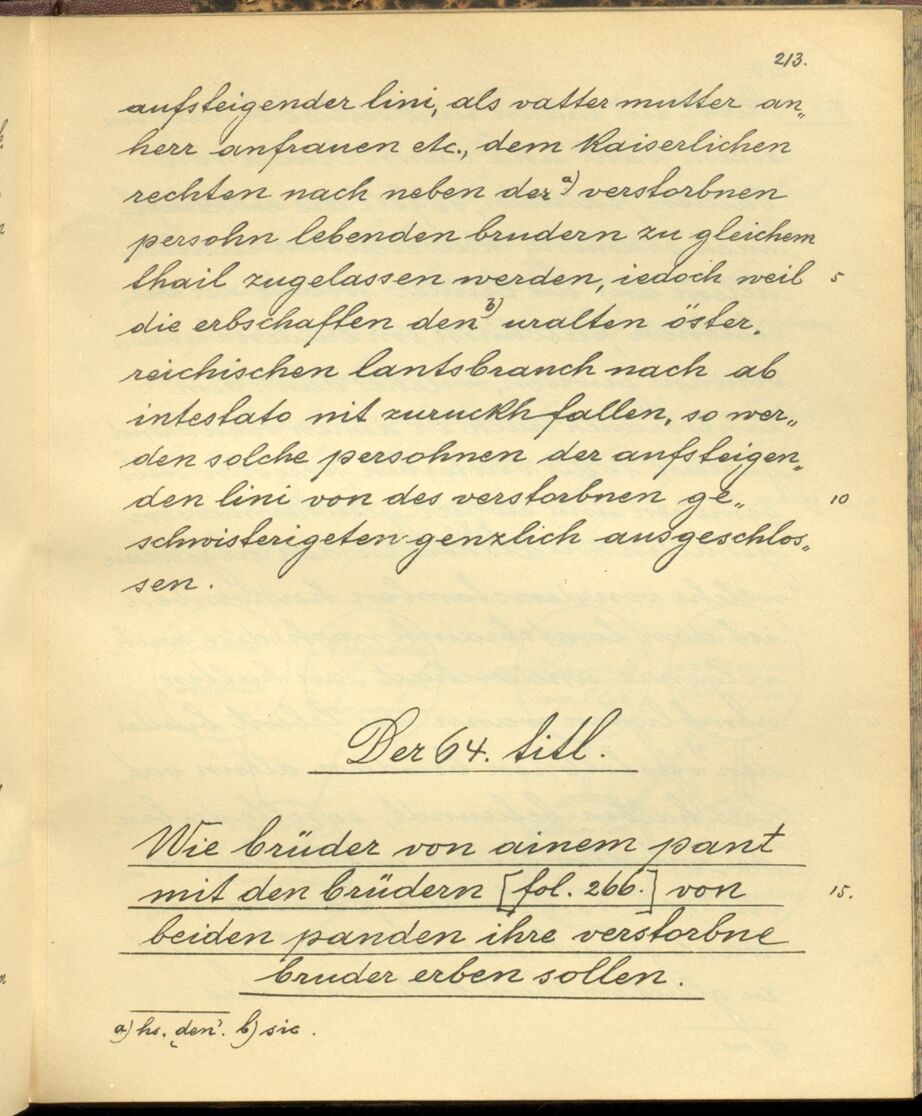 213.
aufsteigender lini, als vatter mutter an„
herr anfrauen etc., dem kaiserlichen
rechten nach neben der a) verstorbnen
persohn lebenden brudern zu gleichem
thail zugelassen werden, iedoch weil 5
die erbschaften den b) uralten öster„
reichischen lantsbrauch nach ab
intestato nit zuruckh fallen, so wer„
den solche persohnen der aufsteigen„
den lini von des verstorbnen ge„ 10
schwisterigeten genzlich ausgeschlos„
sen.
Der 64. titl.
Wie brüder von ainem pant
mit den brüdern [fol. 266.] von 15.
beiden panden ihre verstorbne
bruder erben sollen.
a) hs. ‚den'. b) sic.